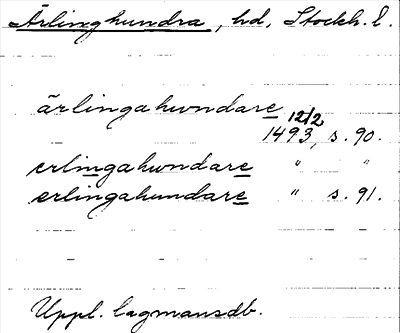 Ärlinghundra, hd, Stockh. l.
ärlingahundare
12/2
1493, s. 90.
erlingahundare " "
erlingahundare " s. 91.
Uppl. lagmansdb.